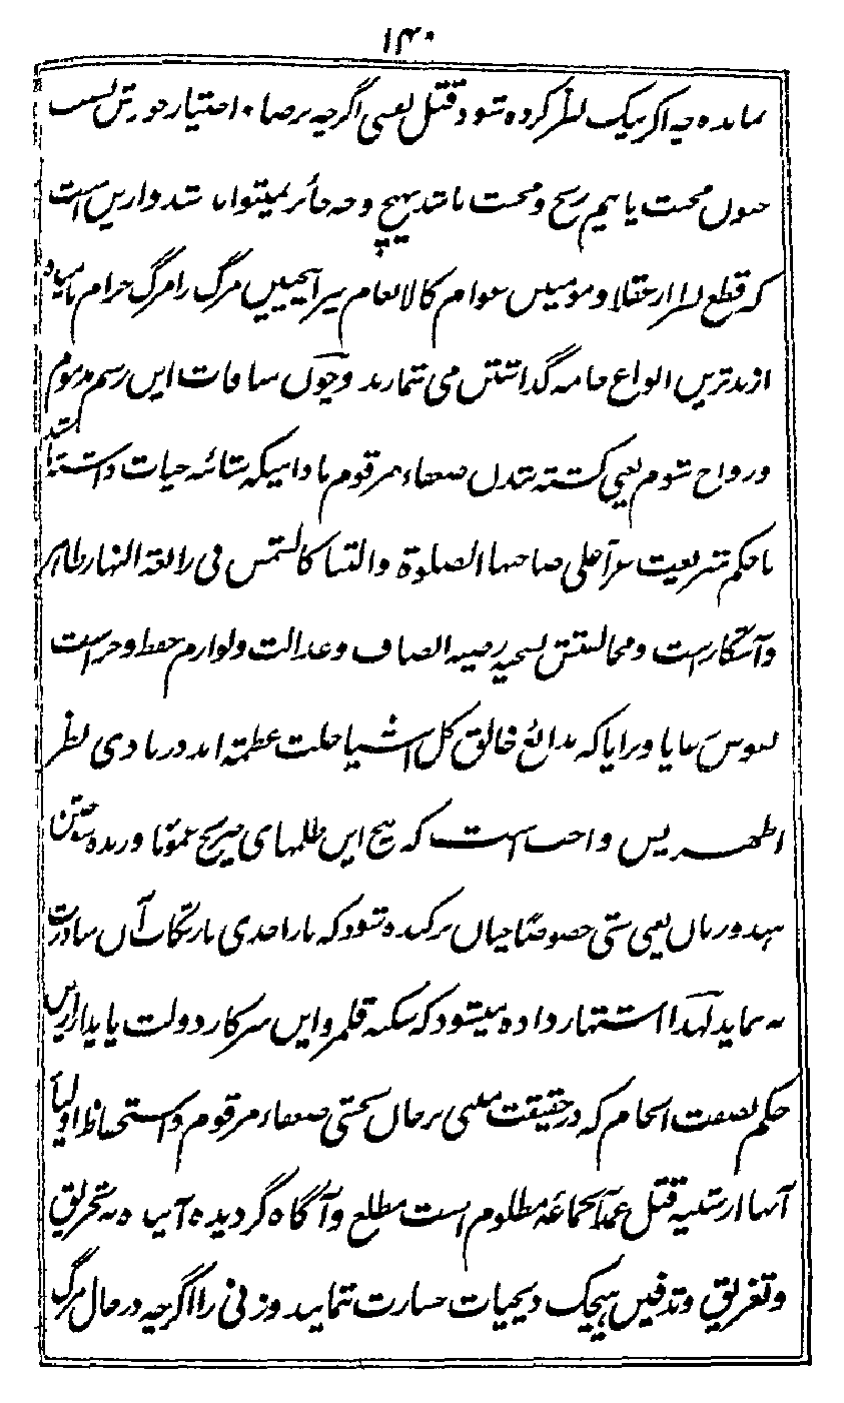 ۱۴۰
نمانده چه اگر نیک نظر کرده شود قتل یعنی اگرچه برضا و اختیار خودش نسبت
چون محبت یا بیم رنج و محنت باشد بهیچ وجه جائز نمیتواند شد و ازین است
که قطع نظر از عقلا و مومنین عوام کالانعام نیز اینچنین مرگ را مرگ حرام نامیده
از بدترین انواع جامه گذاشتن می شمارند و چون منافات این رسم مذموم
و رواج شوم یعنی کشته شدن ضعفاء مرقوم مادامیکه شائبه حیات داشته باشند
با حکم شریعت غرا علی صاحبها الصلوة والثنا کالشمس فی رابعة النهار ظاهر
و آشکار است و مخالفتش بسجیه رضیه انصاف و عدالت و لوازم حفظ و حراست
نفوس رعایا و برایا که بدائع خالق کل اشیا جلت عظمته اند در بادی نظر
اظهر پس واجب است که بیخ این ظلمهای صریح عموما و زنده سوختن
هندو زنان یعنی ستی خصوصا چنان برکنده شود که باز احدی بارتکاب آن مبادرت
نه نماید لهذا اشتهار داده میشود که سکنه قلمرو این سرکار دولت پایدار ازین
حکم نصفت انجام که در حقیقت مبنی بر جان بخشی ضعفاء مرقوم و استحفاظ اولیاء
آنها از شنیعه قتل عمد آنجماعه مظلوم است مطلع و آگاه گردیده آینده به تحریق
و تغریق و تدفین هیچیک ذیحیات جسارت ننمایند و زنی را اگرچه در حال مرگ